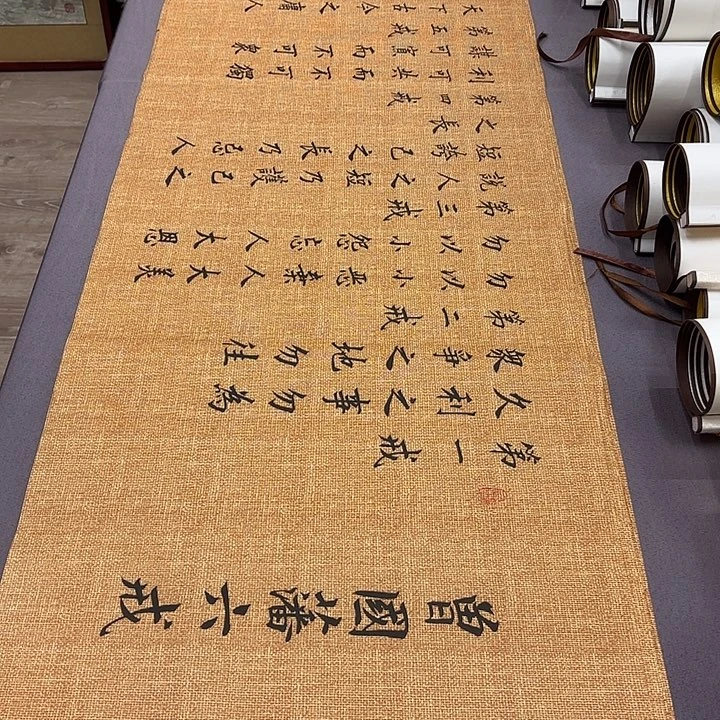 曾國藩六戒
第一戒
久利之事勿為
眾爭之地勿往
第二戒
勿以小惡棄人大美
勿以小怨忘人大恩
第三戒
說人之短乃護己之
短誇己之長乃忌人
之長
第四戒
利可共而不可獨
謀可寡而不可眾
第五戒
天下古今之庸人